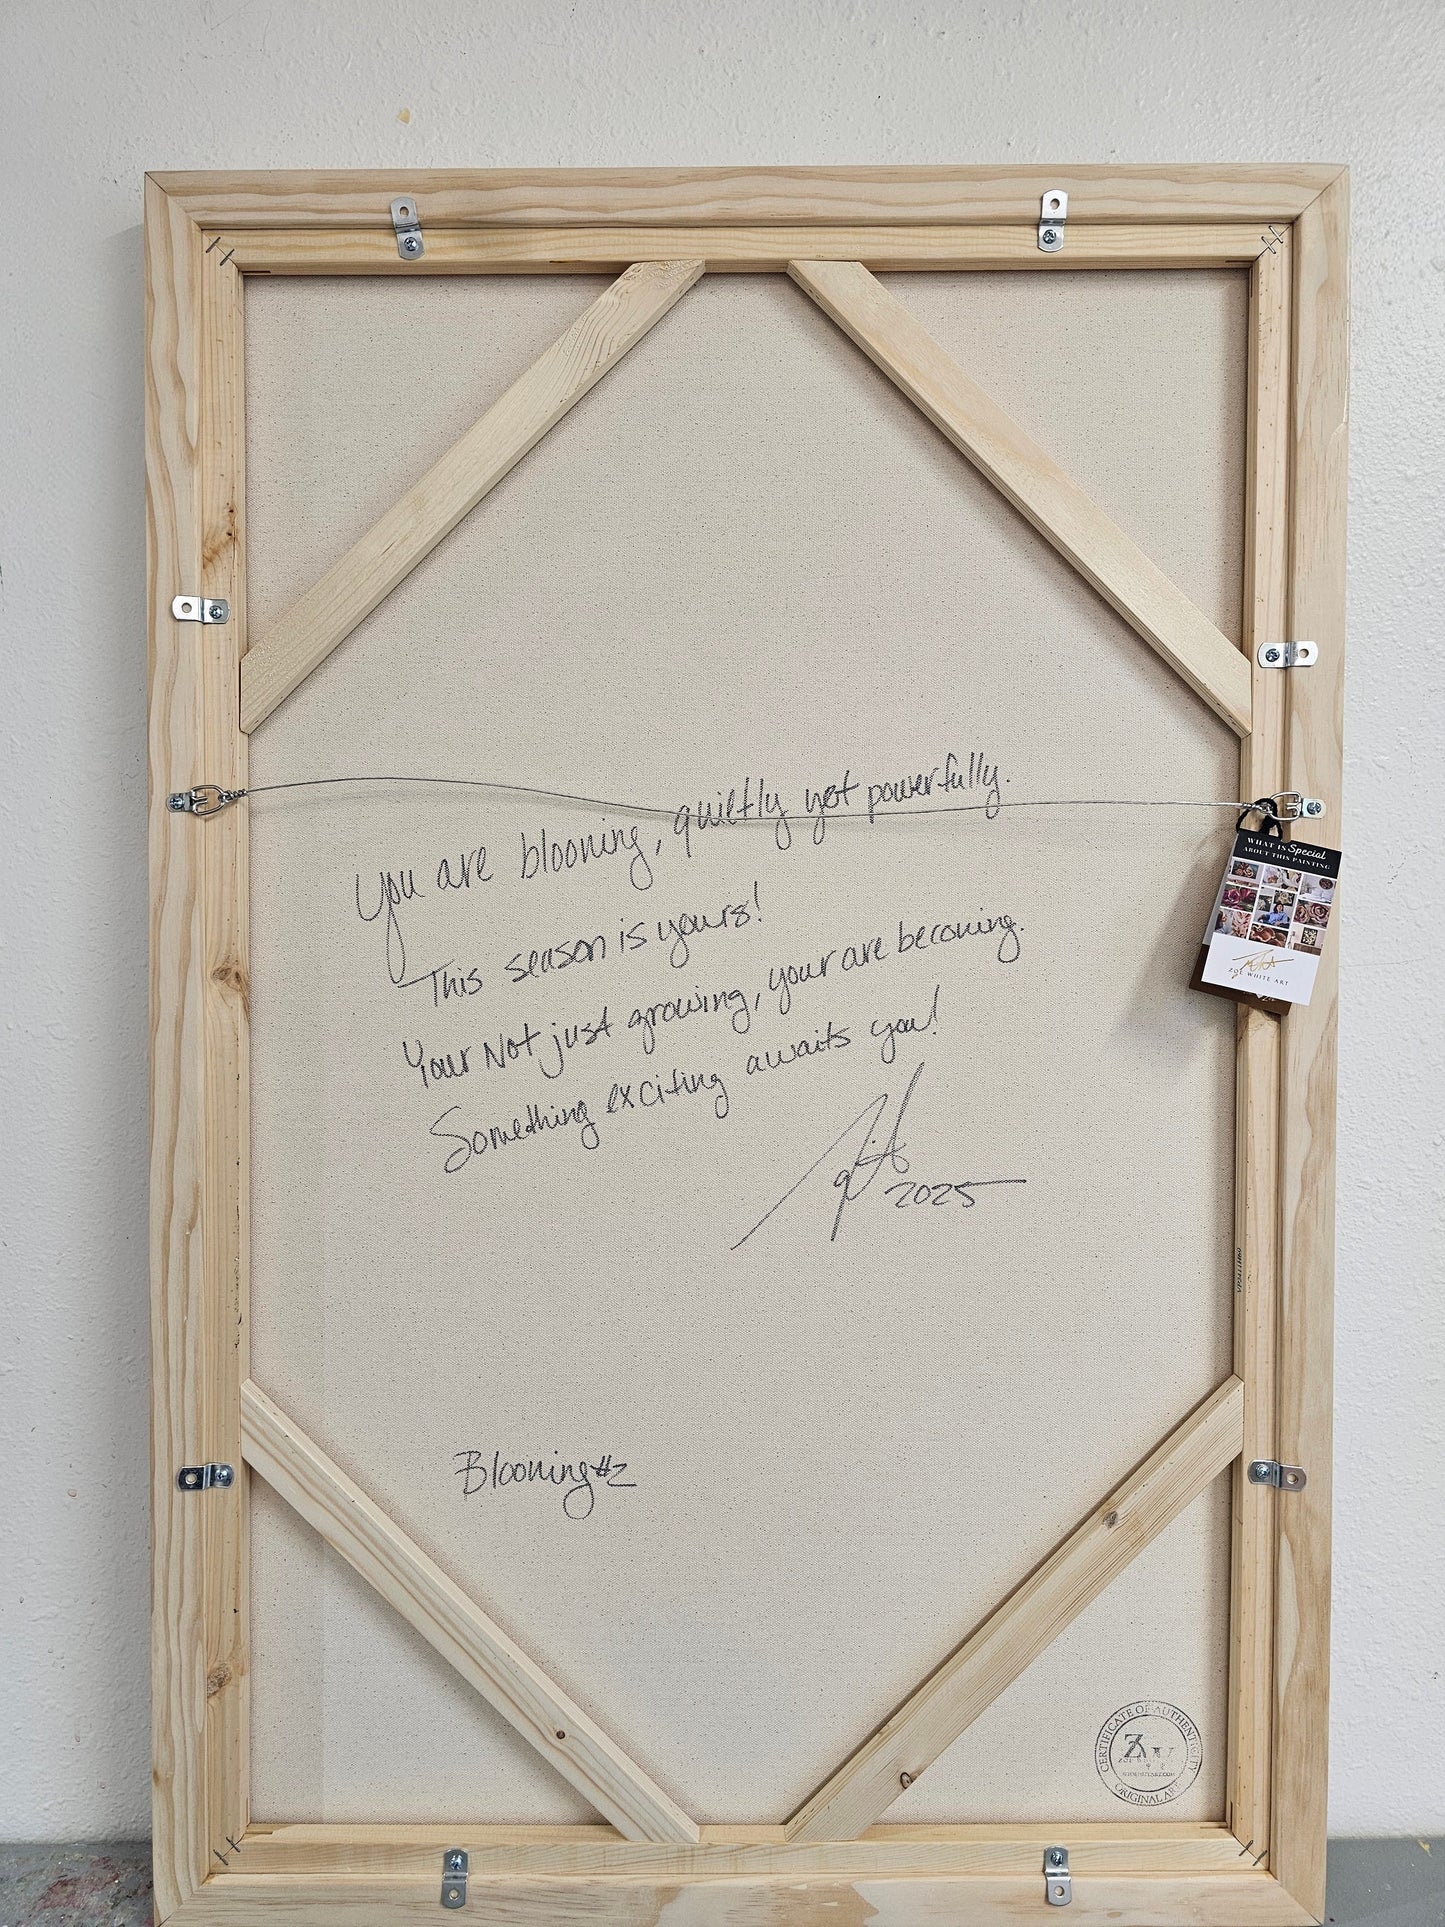 You are blooming, quietly yet powerfully.
This season is yours!
Your Not just growing, your are becoming.
Something exciting awaits you!
2025
WHAT IS Special
ABOUT THIS PAINTING
ZOE WHITE ART
Blooming #2
CERTIFICATE OF AUTHENTICITY
ORIGINAL ART